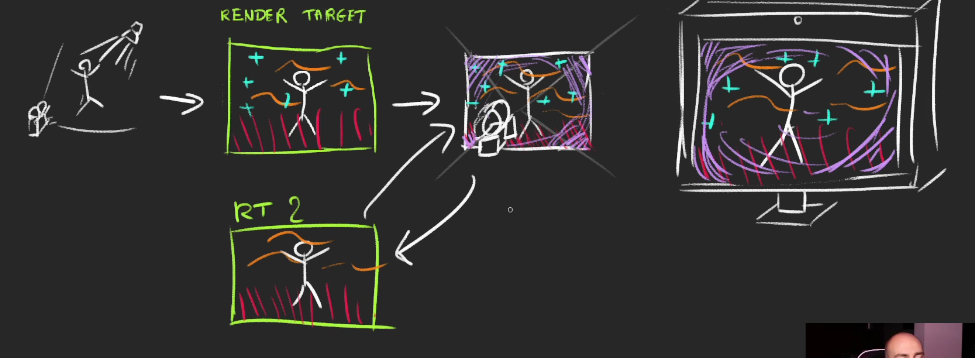 RENDER TARGET
RT 2